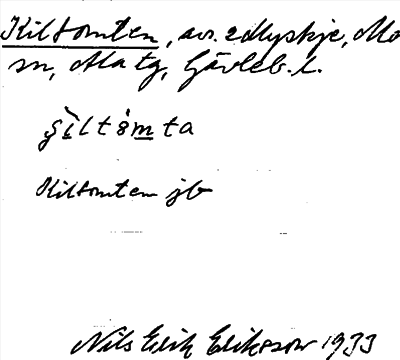 Kiltomten, av. 2 Myskje, Mo
sn, Ala tg, Gävleb. l.
gìltåmta
Kiltomten jb
Nils Erik Eriksson 1933